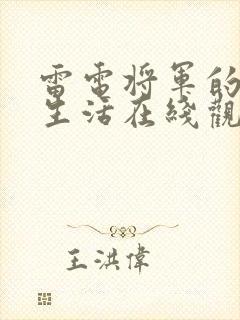 雷電將軍的
生活在綫觀
王洪偉